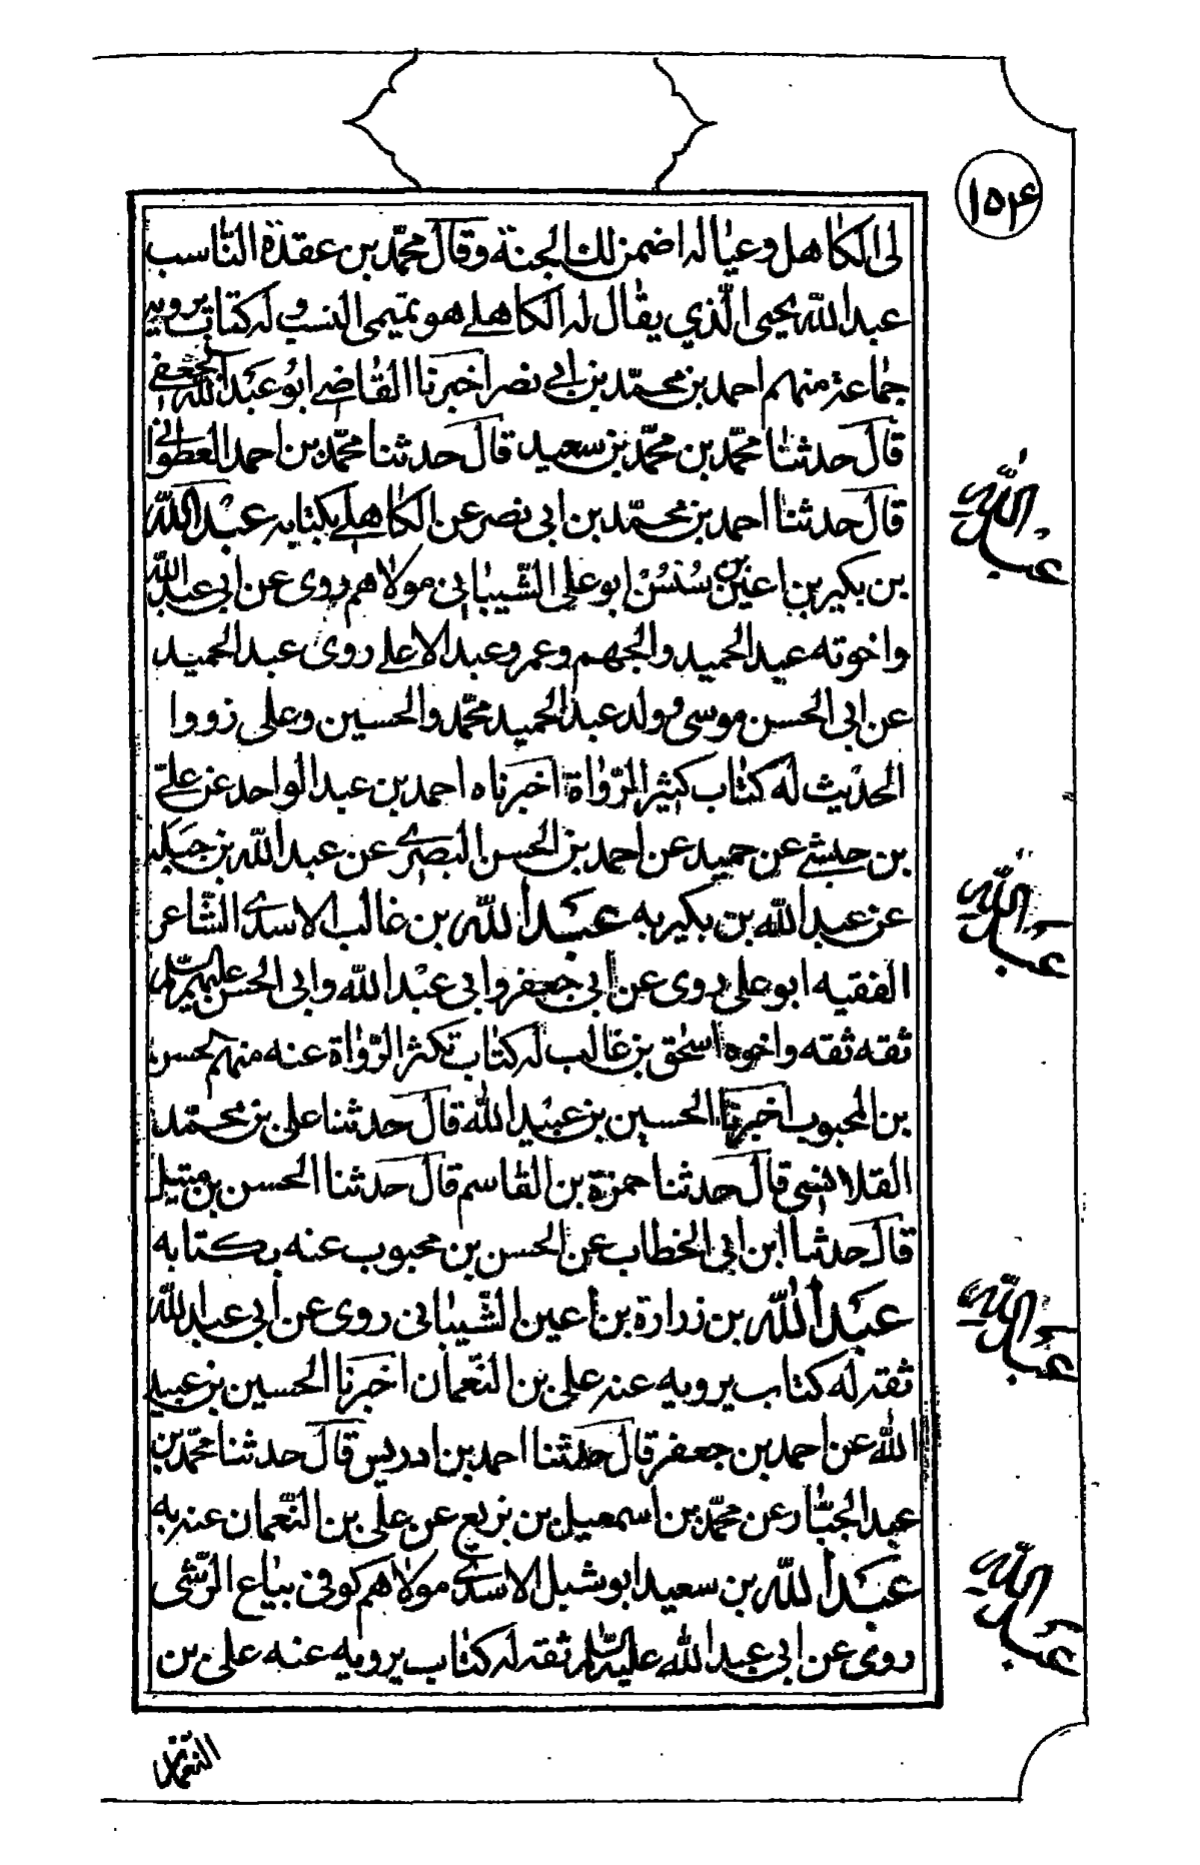 ١٥٤
لى الكاهل وعياله اضمن لك الجنة وقال محمّد بن عقدة الناسب
عبد الله يحيى الّذي يقال له الكاهلي هو تميمى النسب وله كتاب يرويه
جماعة منهم احمد بن محمّد بن ابي نصر اخبرنا القاضي ابو عبد الله الجعفي
قال حدثنا محمّد بن محمّد بن سعيد قال حدثنا محمّد بن احمد القطواني
قال حدثنا احمد بن محمّد بن ابى نصر عن الكاهلي بكتابه عبد الله
عبد الله
بن بكير بن اعين بن سُنسُن ابو على الشّيبانى مولاهم روى عن ابى عبد الله
واخوته عبد الحميد والجهم وعمر وعبد الاعلى روى عبد الحميد
عن ابى الحسن موسى وولد عبد الحميد محمّد والحسين وعلى رووا
الحديث له كتاب كثير الرّواة اخبرناه احمد بن عبد الواحد عن علي
بن حبشي عن حميد عن احمد بن الحسن البصري عن عبد الله بن جبلة
عن عبد الله بن بكير به عبد الله بن غالب الاسدي الشّاعر
عبد الله
الفقيه ابو على روى عن ابي جعفر وابي عبد الله وابى الحسن عليهم السلام
ثقه ثقه واخوه اسحٰق بن غالب له كتاب تكثر الرّواة عنه منهم الحسن
بن المحبوب اخبرنا الحسين بن عبيد الله قال حدثنا على بن محمّد
القلانسى قال حدثنا حمزة بن القاسم قال حدثنا الحسن بن متيل
قال حدثنا ابن ابى الخطاب عن الحسن بن محبوب عنه بكتابه
عبد الله بن زرارة بن اعين الشّيبانى روى عن ابي عبد الله
عبد الله
ثقه له كتاب يرويه عنه على بن النّعمان اخبرنا الحسين بن عبيد
الله عن احمد بن جعفر قال حدثنا احمد بن ادريس قال حدثنا محمّد بن
عبد الجبّار عن محمّد بن اسمعيل بن بزيع عن على بن النّعمان عنه به
عبد الله بن سعيد ابو شبل الاسدي مولاهم كوفى بياع الوشى
عبد الله
روى عن ابى عبد الله عليه السّلم ثقه له كتاب يرويه عنه على بن
النعمان